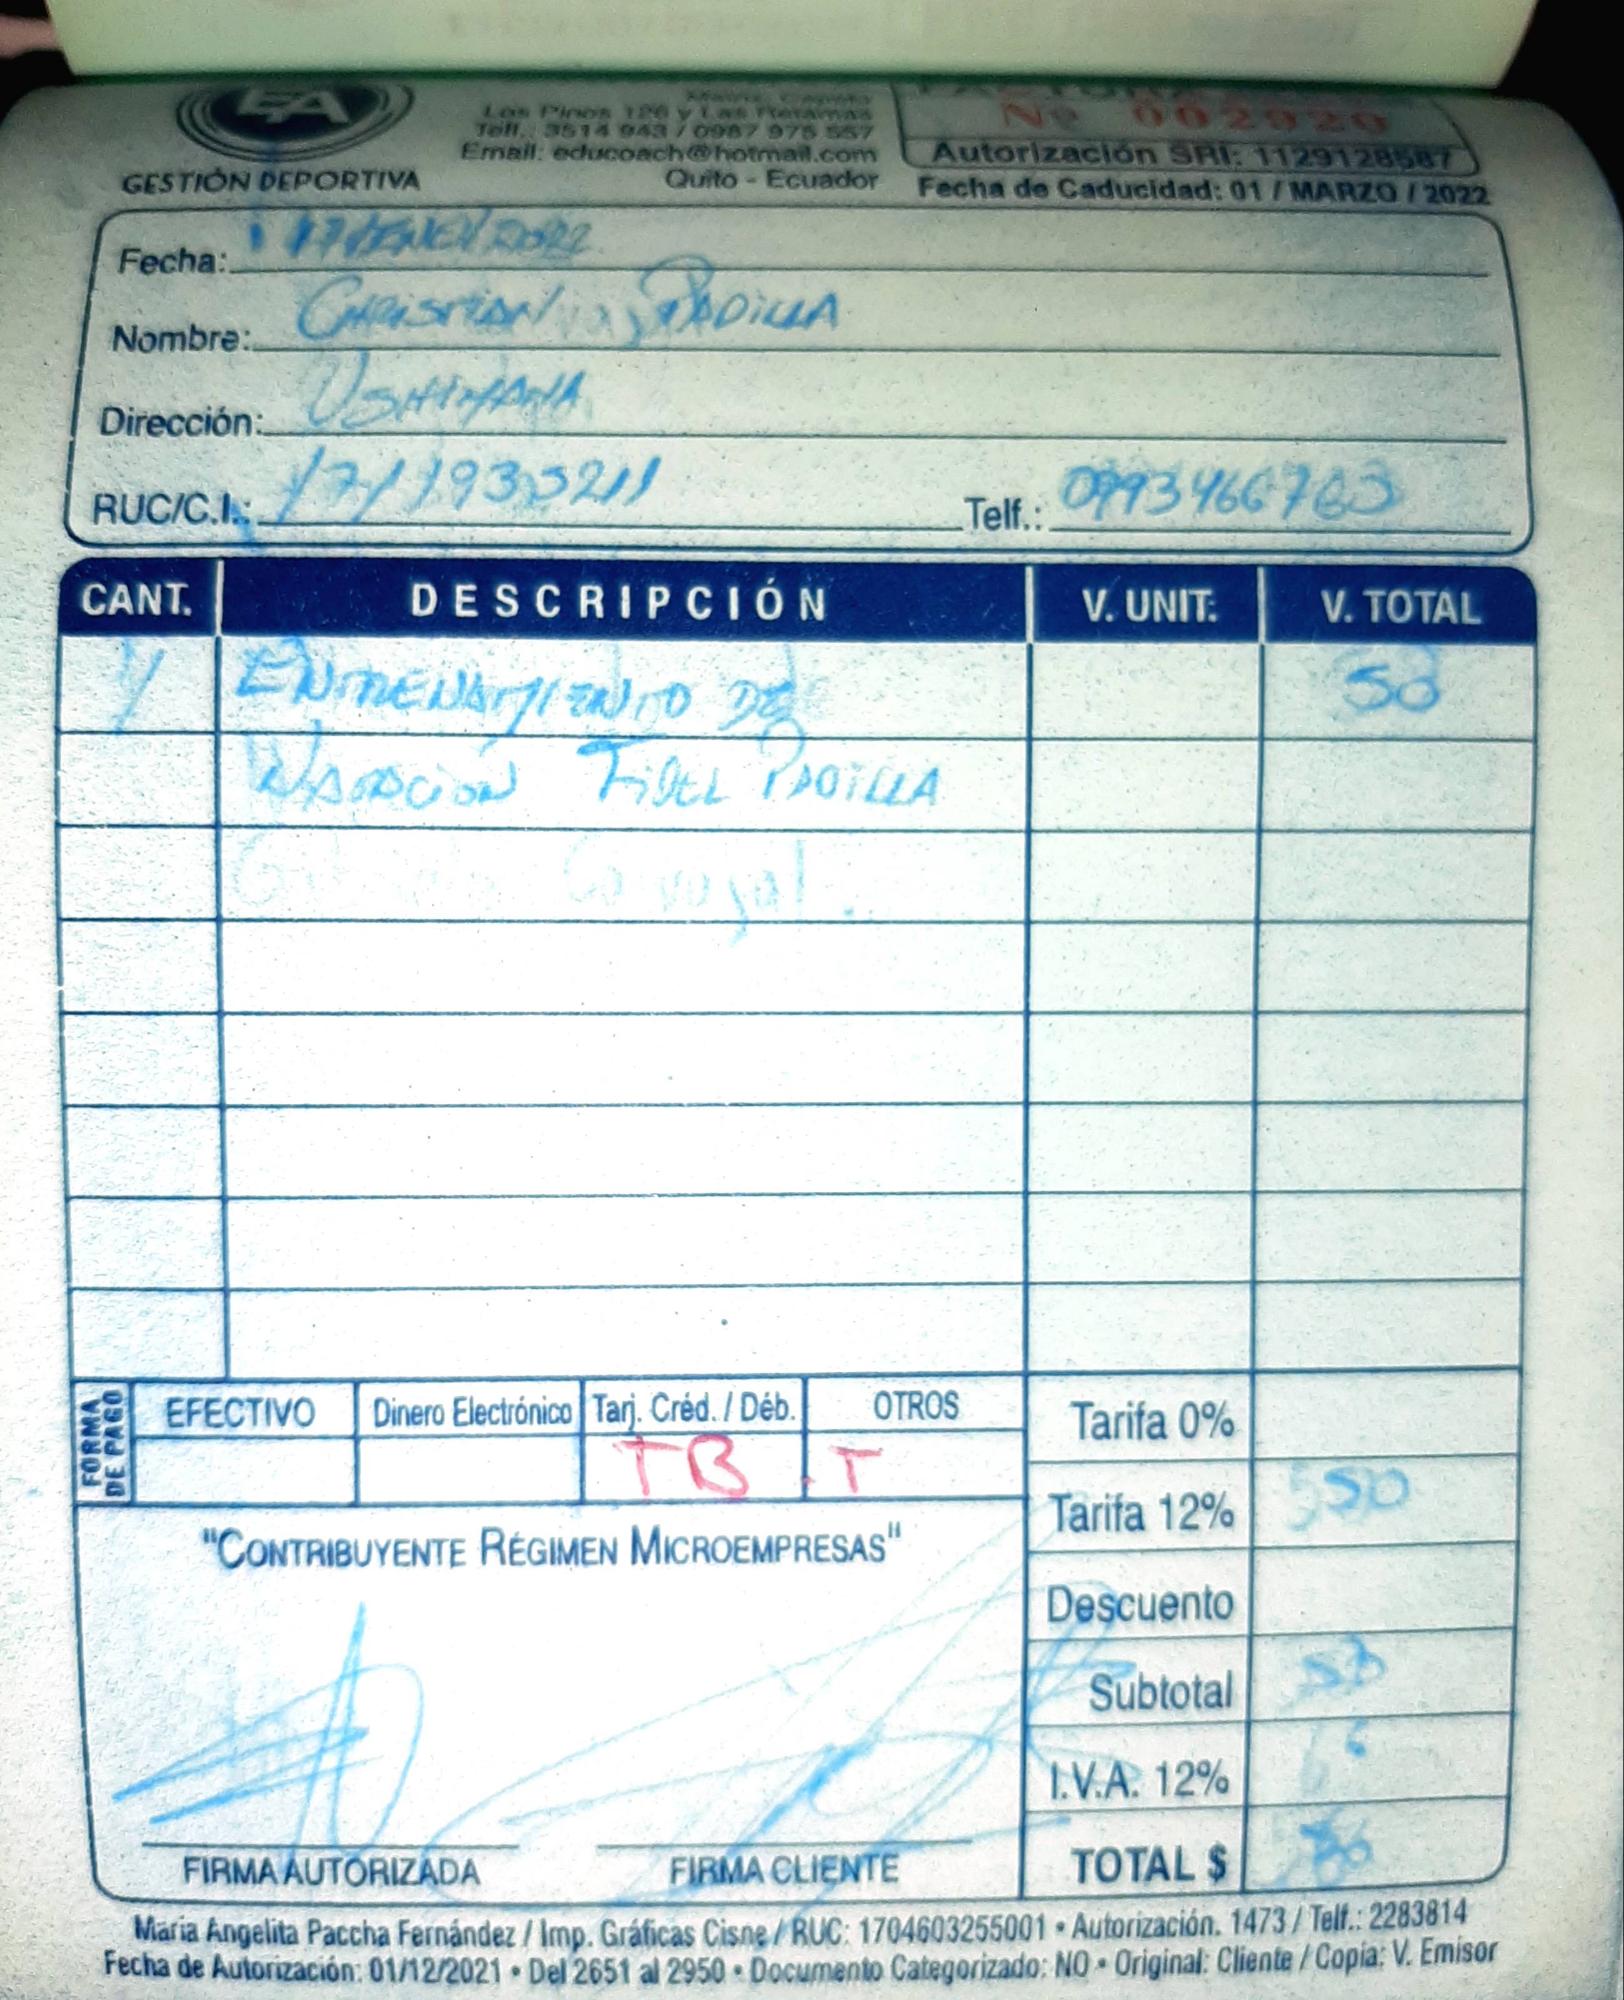 EA
GESTIÓN DEPORTIVA
Los Pinos 126 y Las Retamas
Telf.: 3514 943 / 0987 975 557
Email: educoach@hotmail.com
Quito - Ecuador
FACTURA
Nº 002920
Autorización SRI: 1129128587
Fecha de Caducidad: 01 / MARZO / 2022
Fecha: 17/ENE/2022
Nombre: CHRISTIAN PADILLA
Dirección: USHIMANA
RUC/C.I.: Telf.: 0993466763
CANT. DESCRIPCIÓN V. UNIT. V. TOTAL
1 ENTRENAMIENTO DE 50
NATACIÓN FIDEL PADILLA
FORMA DE PAGO
EFECTIVO Dinero Electrónico Tarj. Créd. / Déb. OTROS
TB T
Tarifa 0%
Tarifa 12% 50
Descuento
Subtotal 50
I.V.A. 12% 6
TOTAL $ 56
"CONTRIBUYENTE RÉGIMEN MICROEMPRESAS"
FIRMA AUTORIZADA FIRMA CLIENTE
Maria Angelita Paccha Fernández / Imp. Gráficas Cisne / RUC: 1704603255001 • Autorización. 1473 / Telf.: 2283814
Fecha de Autorización: 01/12/2021 • Del 2651 al 2950 • Documento Categorizado: NO • Original: Cliente / Copia: V. Emisor